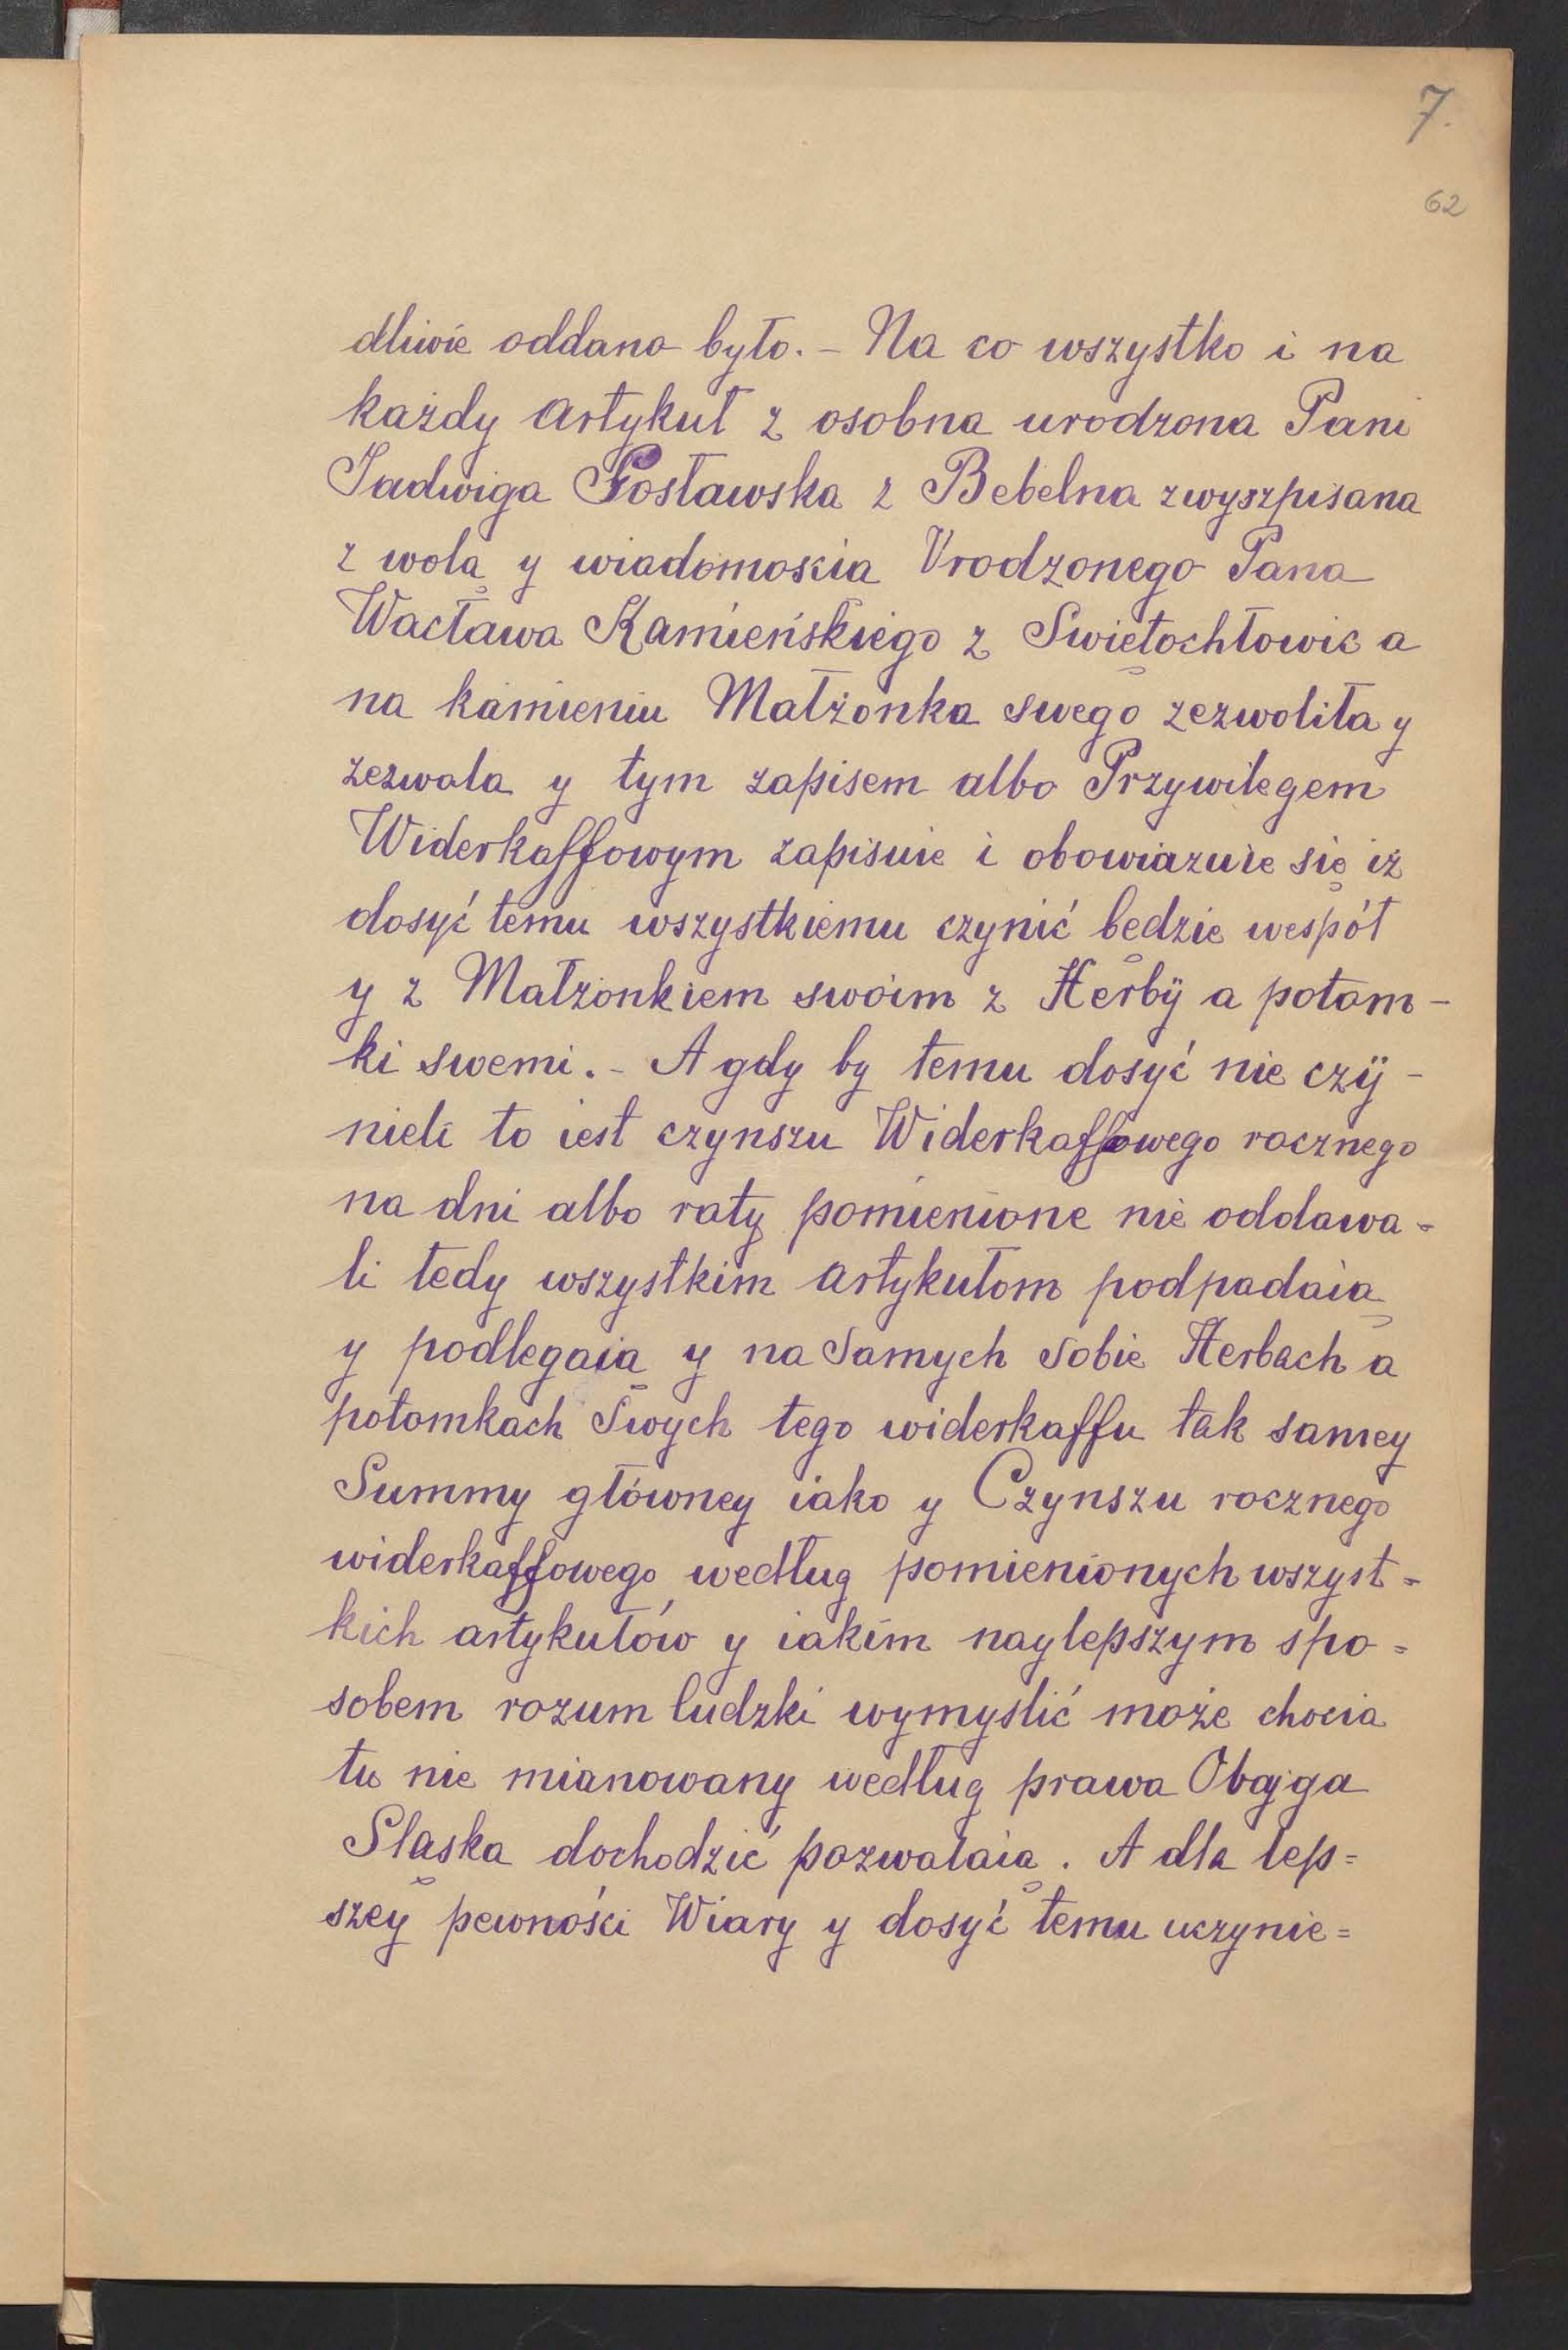 7.
62
dliwie oddano było. – Na co wszystko i na
każdy artykuł z osobna urodzona Pani
Jadwiga Gosławska z Bebelna zwyszpisana
z wolą y wiadomoscia Vrodzonego Pana
Wacława Kamieńskiego z Swiętochłowic a
na kamieniu Małżonka swego zezwoliła y
zezwala y tym zapisem albo Przywilegem
Widerkaffowym zapisuie i obowiazuie się iż
dosyć temu wszystkiemu czynić będzie wespół
y z Małżonkiem swoim z Herbÿ a potom –
ki swemi. – A gdy by temu dosyć nie czÿ –
nieli to iest czynszu Widerkaffowego rocznego
na dni albo raty pomienione nie oddawa =
li tedy wszystkim artykułom podpadaią
y podlegaią y na samych sobie Herbach a
potomkach swych tego widerkaffu tak samey
Summy główney iako y Czynszu rocznego
widerkaffowego według pomienionych wszyst =
kich artykułów y iakim naylepszym spo =
sobem rozum ludzki wymyslić może chocia
tu nie mianowany według prawa Obojga
Sląska dochodzić pozwalaią. A dla lep =
szey pewności Wiary y dosyć temu uczynie =